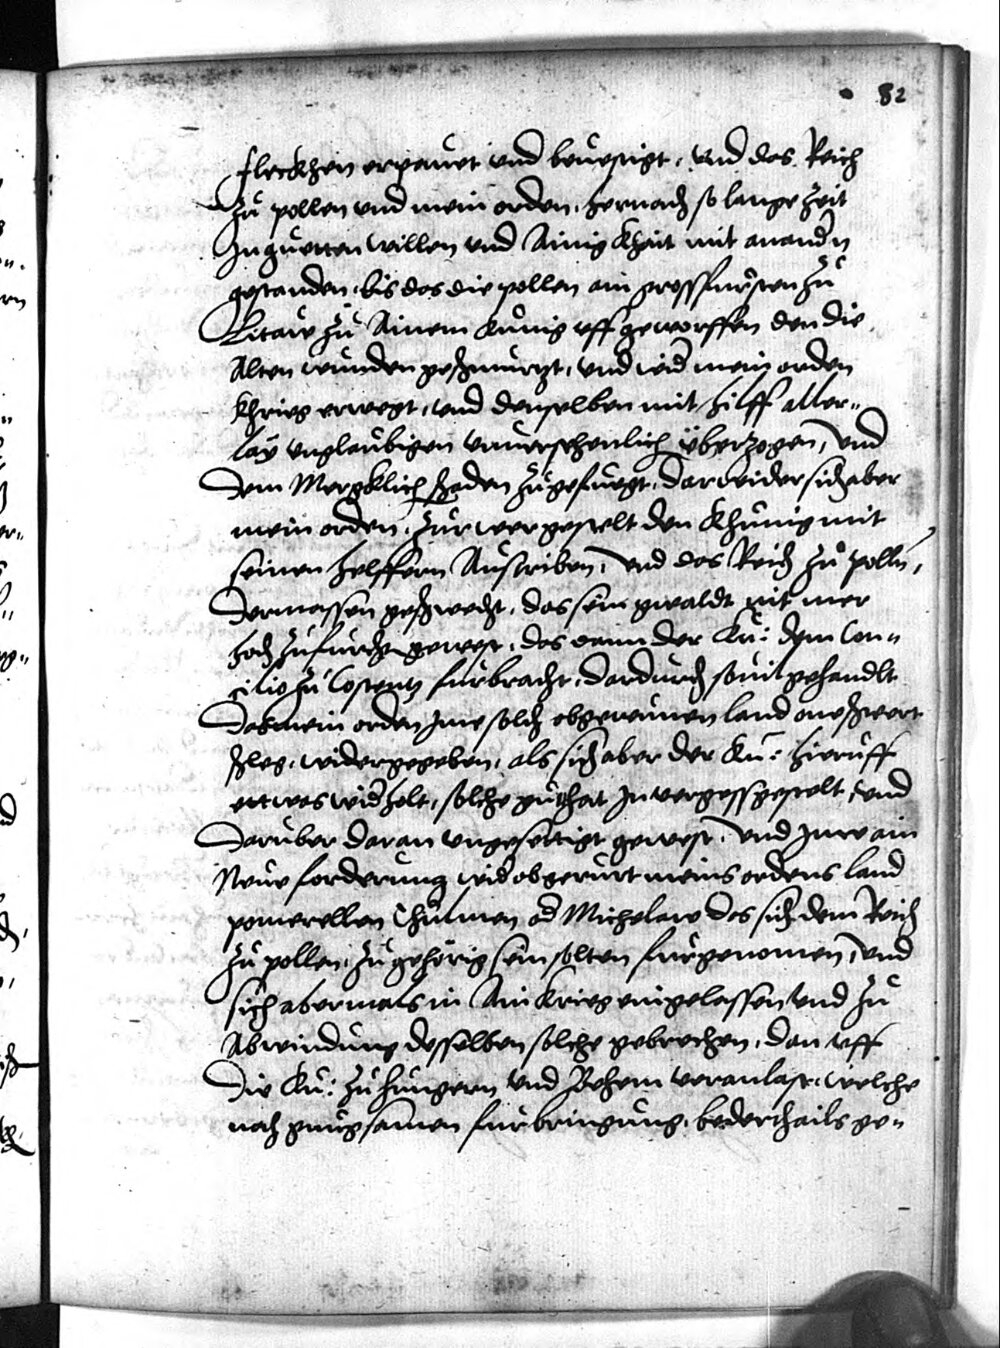 82
fleckhen erpauet und beuestigt, und das Reich
zu pollen und mein orden, hernach so lange zeit
In guetten willen und Ainigkhait mit anandn
gestanden, bis das die pollen ain grossfursten zu
Litaw zu Ainem kunig uffgeworffen den die
Alten wunden geschmirtzt, und wid mein orden
khrieg erwegt, und denselben mit hilff aller„
lay unglaubigen unuersehenlich überzogen, und
dem Mergklich schaden zugefuegt, darwider sich aber
mein orden, zur wer gestelt den khunig mit
seinen helffern Austriben, und das Reich zu polln,
dermassen geschwecht, das sein gwaldt nit mer
hoch zufurchn gewest, das dann der Ku: dem Con„
cilio zu Costentz furbracht, dardurch souil gehandlt
das mein orden Ime solch abgewunen land one schwert
schleg, widergegeben, als sich aber der Ku: hieruff
ettwas widholt, solche guthat In vergess gestelt, und
daruber daran ungesettigt gewest, und Inne ain
Neue forderung wid obgerurt meins ordens land
pomerellen Chulmen od Michelaw das sich dem Reich
zu pollen, zu gehörig sein solten furgenomen, und
sich abermals in Ain krieg eingelassen und zu
Abwindung desselben solche gebrechen, dan uff
die Ku: zu hungern und Behem veranlast, welche
nach gnugsamen furbringung, bederthails ge„